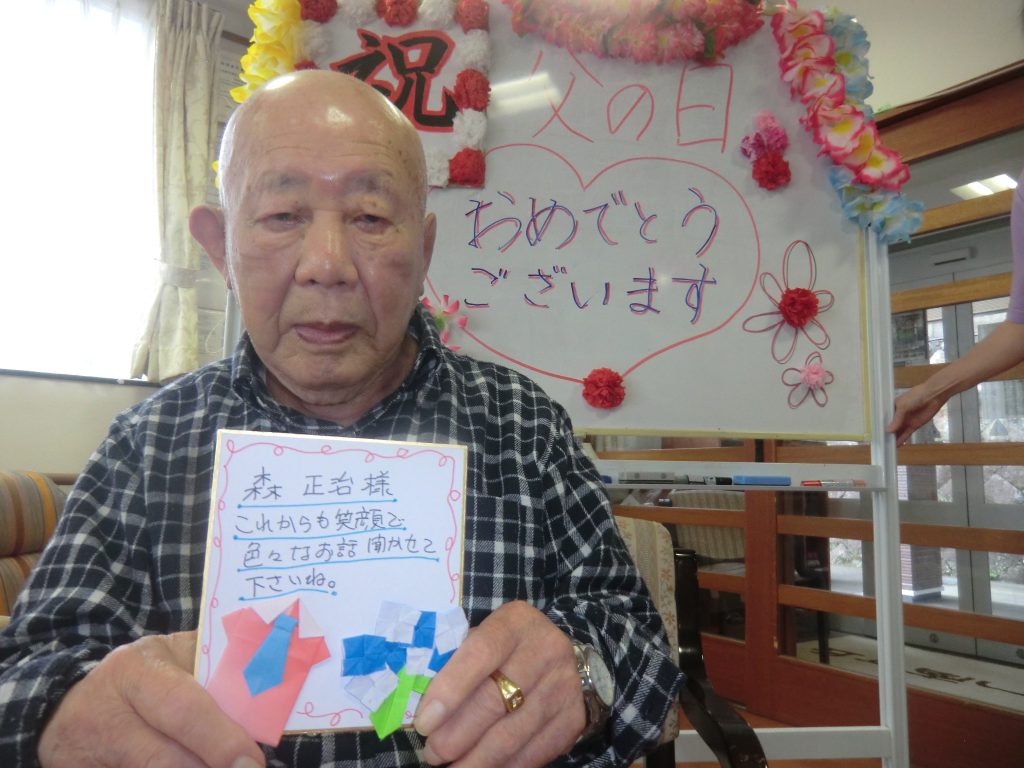 祝
父の日
おめでとう
ございます
森 正治 様
これからも笑顔で
色々なお話 聞かせて
下さいね。